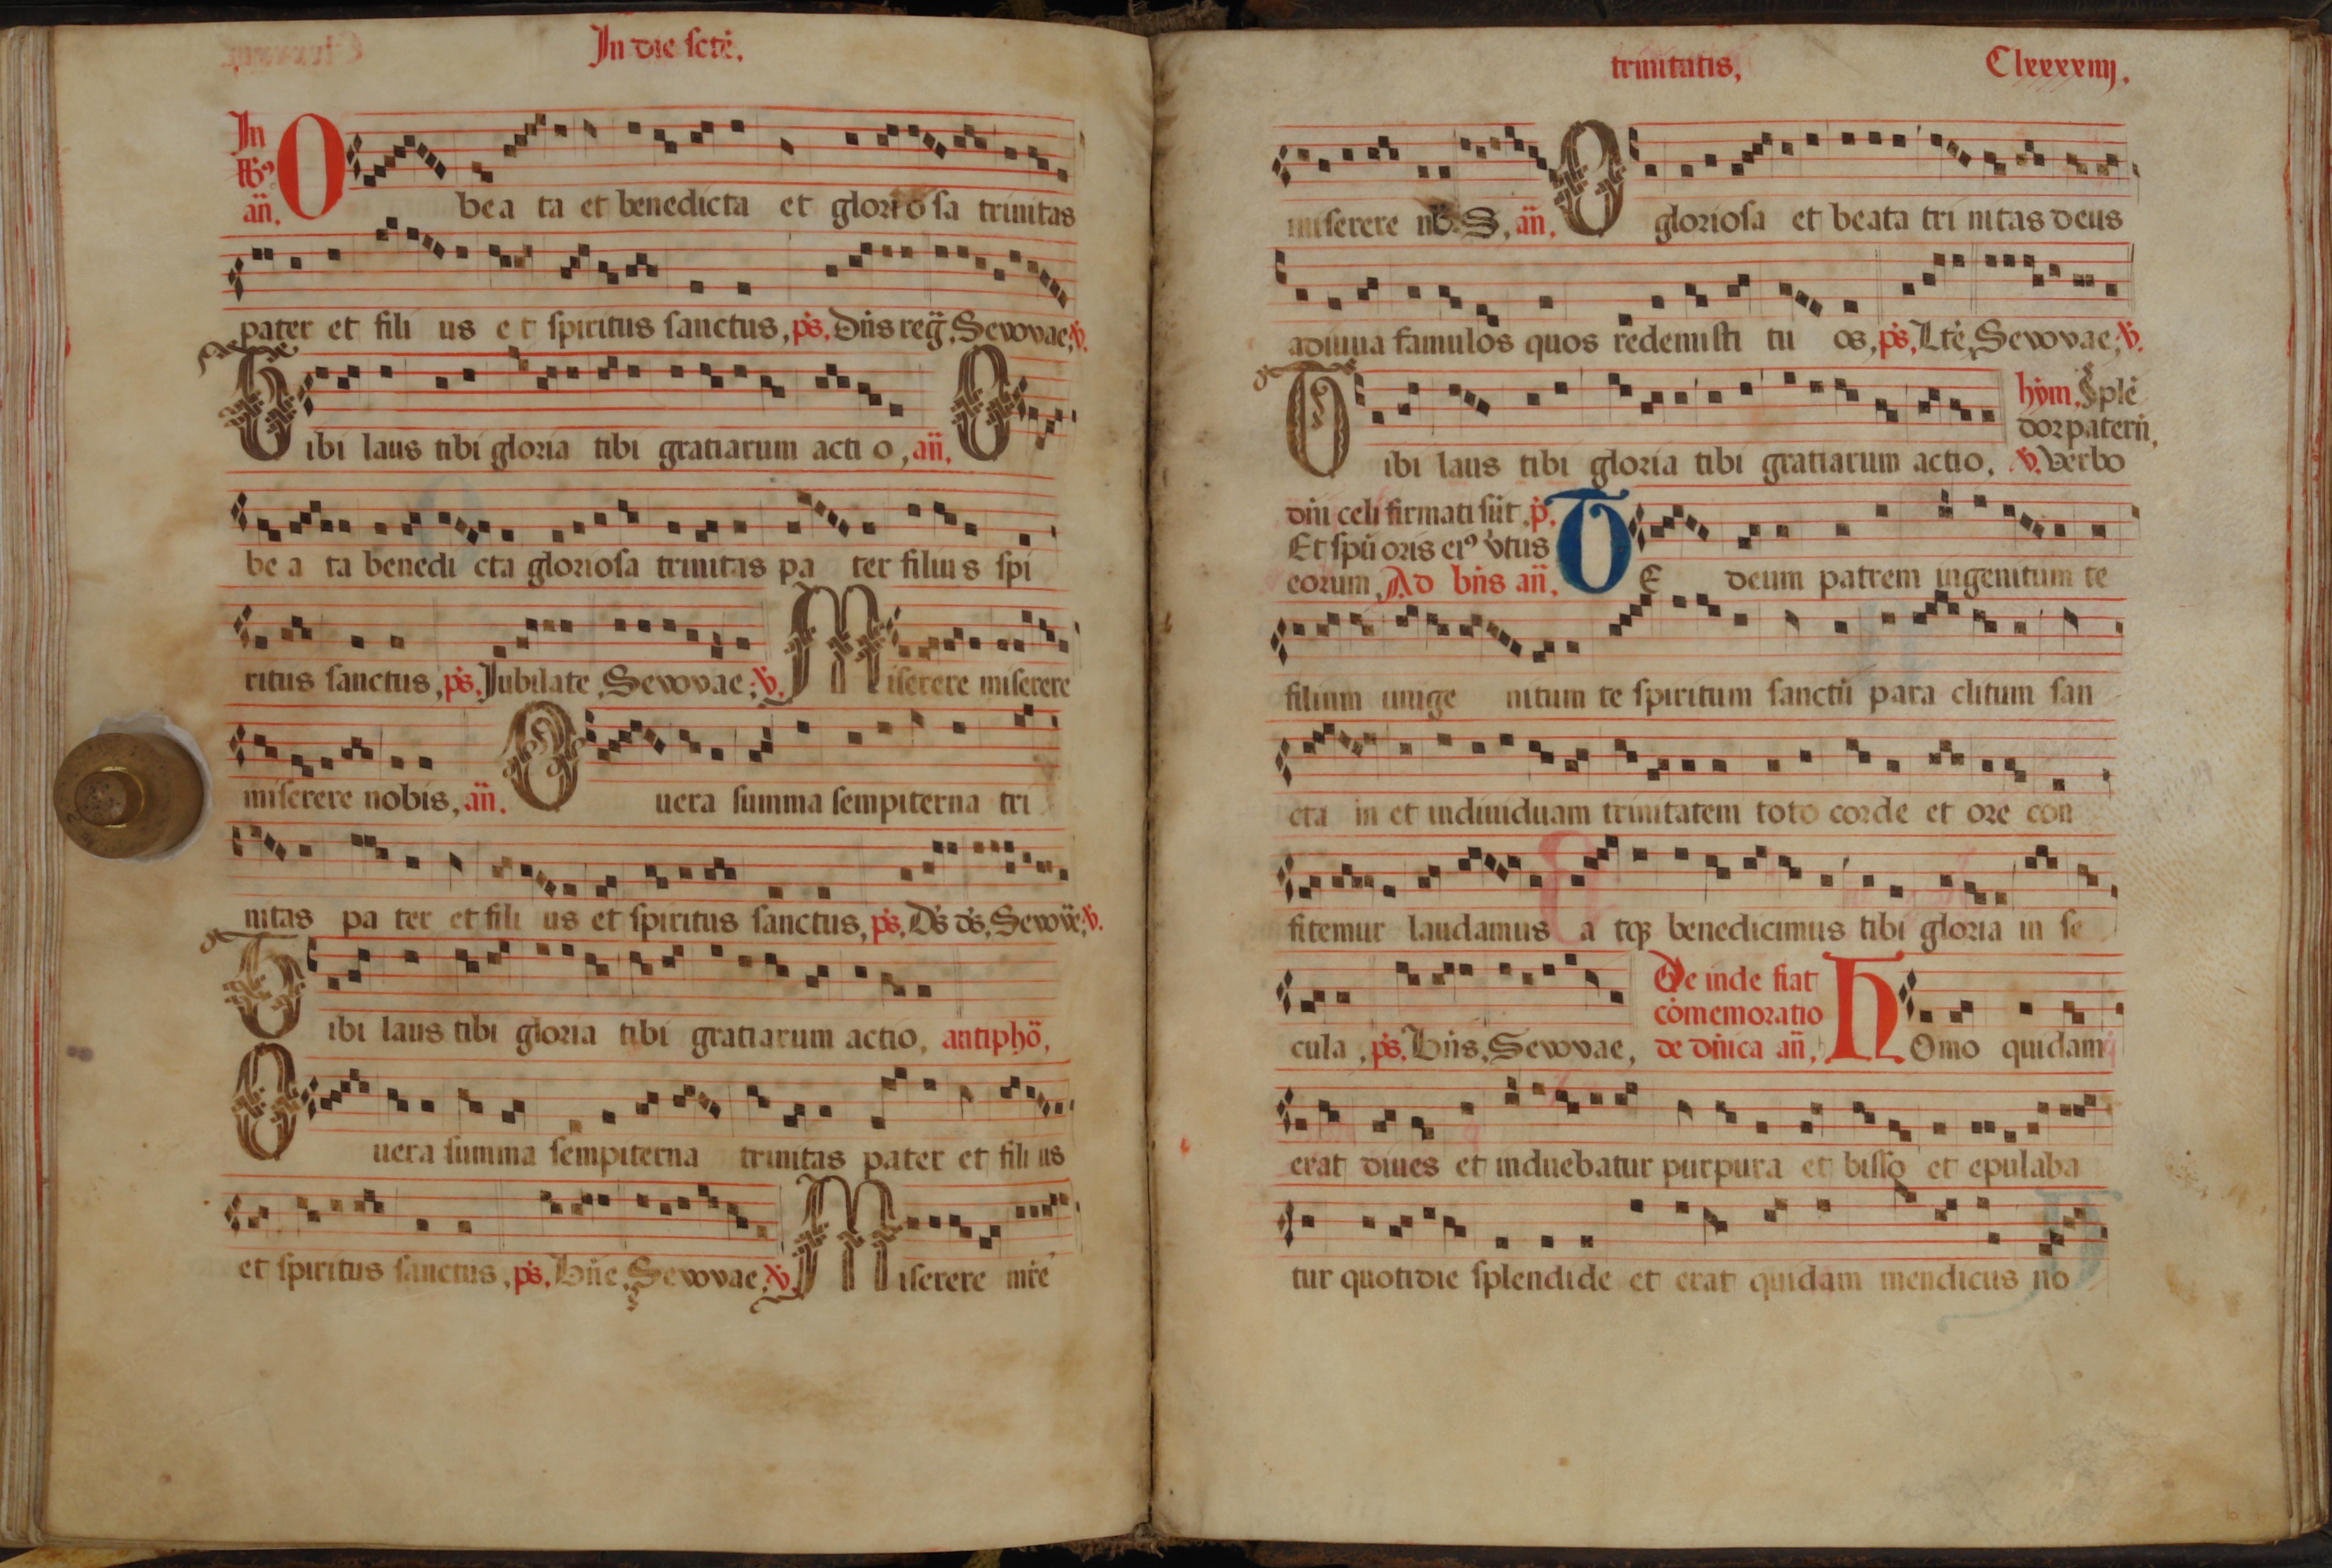 In die scte.
In
an.
O bea ta et benedicta et glorio sa trinitas
pater et fili us et spiritus sanctus, ps. Dns reg. Seuouae. v.
Tibi laus tibi gloria tibi gratiarum acti o, an. O
be a ta benedi cta gloriosa trinitas pa ter filius spi
ritus sanctus, ps. Jubilate. Seuouae. v. Miserere miserere
miserere nobis, an. O uera summa sempiterna tri
nitas pa ter et fili us et spiritus sanctus, ps. Ds ds. Seuoue. v.
Tibi laus tibi gloria tibi gratiarum actio, antipho,
O uera summa sempiterna trinitas pater et fili us
et spiritus sanctus, ps. Bne. Seuouae. v. Miserere mre
trinitatis, Clxxxxiiij.
miserere nb. S, an. O gloriosa et beata tri nitas deus
adiuua famulos quos redemisti tu os, ps. Lte. Seuouae. v.
hym. Sple
dor patern,
Tibi laus tibi gloria tibi gratiarum actio, v. Verbo
dni celi firmati sut. p.
Et spu oris ei9 vtus
eorum, Ad bns an. TE deum patrem ingenitum te
filium unige nitum te spiritum sanctu para clitum san
cta m et indiuiduam trinitatem toto corde et ore con
fitemur laudamus a tqz benedicimus tibi gloria in se
De inde fiat
comemoratio
cula, ps. Bns. Seuouae, de dnica an, HOmo quidam
erat diues et induebatur purpura et bisso et epulaba
tur quotidie splendide et erat quidam mendicus no